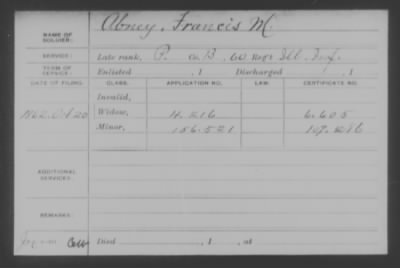 NAME OF SOLDIER: Abney, Francis M.
SERVICE: Late rank, P. Co. B, 60 Reg't Ill. Inf.
TERM OF SERVICE: Enlisted , 1 Discharged , 1
DATE OF FILING. CLASS. APPLICATION NO. LAW. CERTIFICATE NO.
Invalid,
1862, Oct 20 Widow, 4.216 6.605
Minor, 156.521
ADDITIONAL SERVICES:
REMARKS:
Died , 1 , at